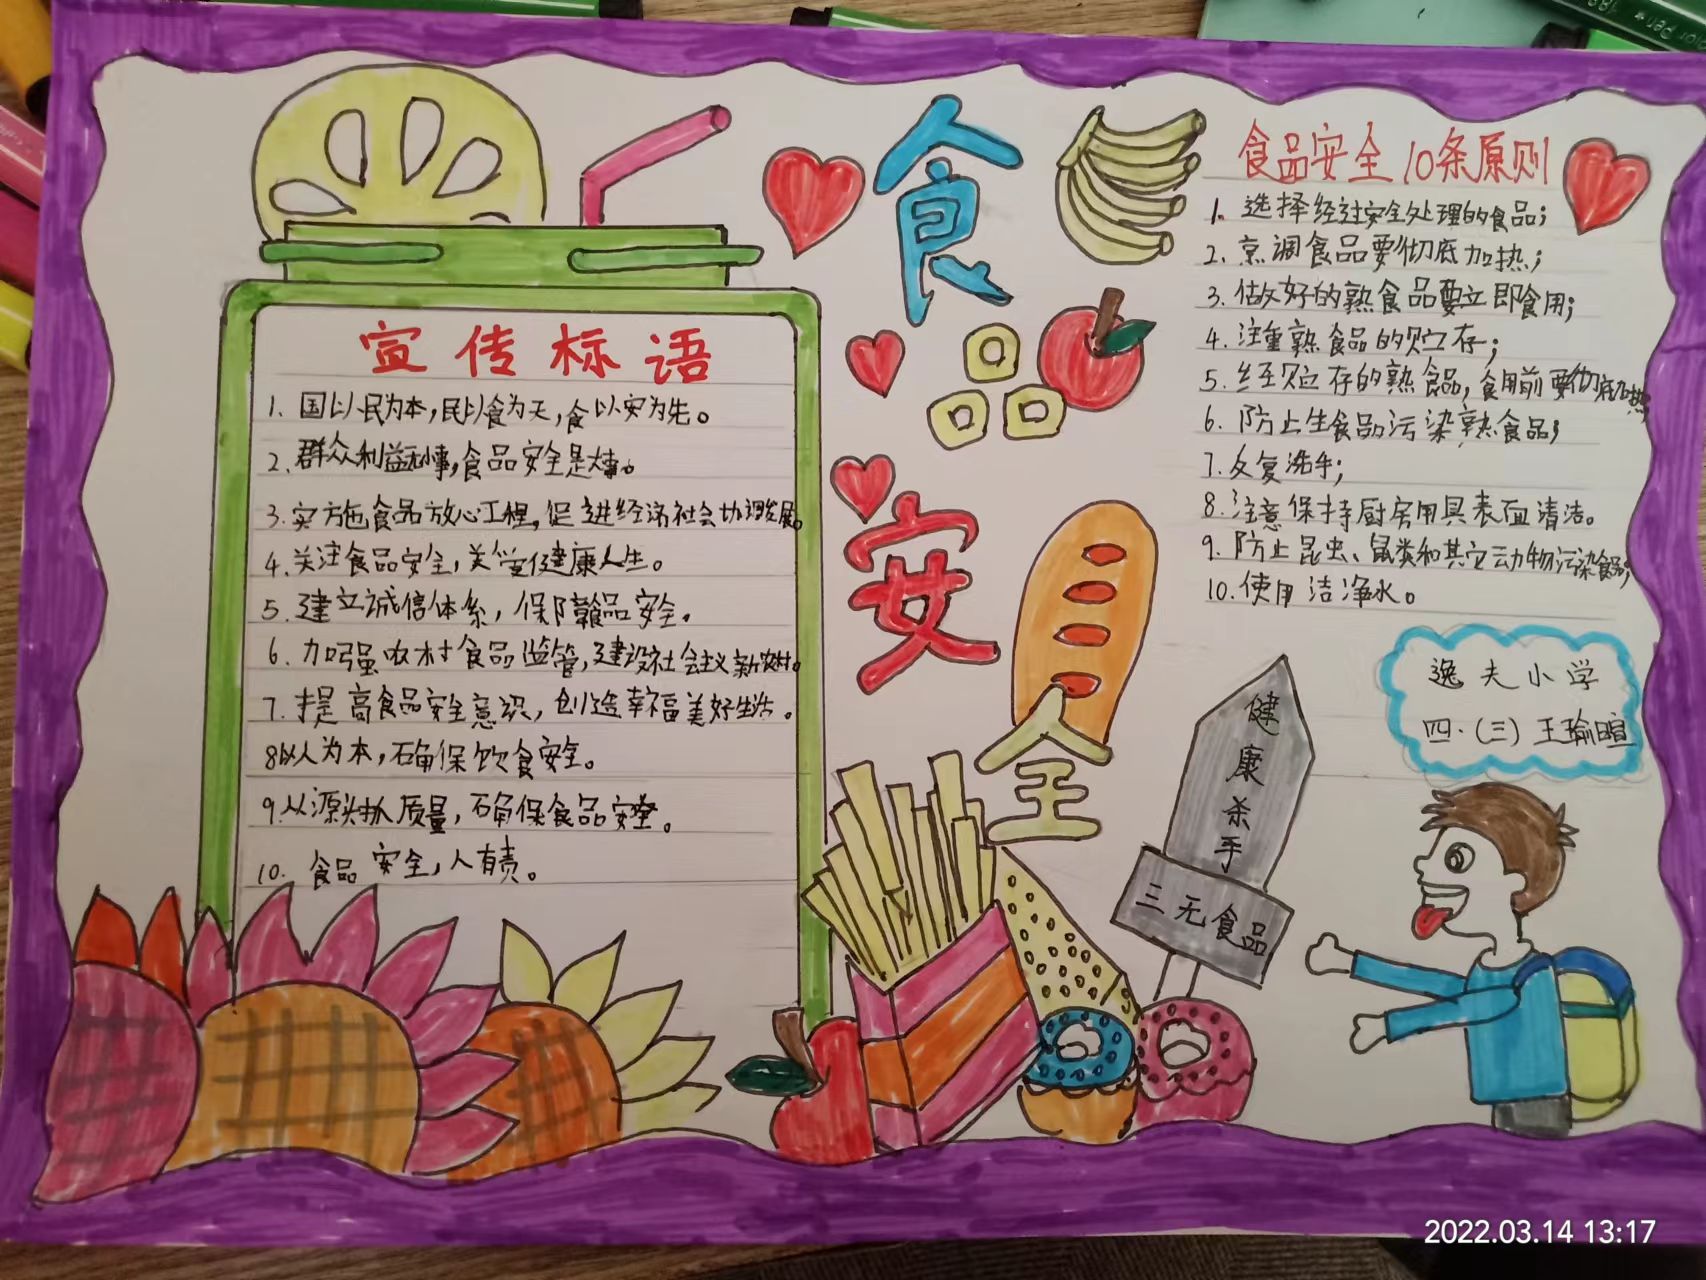 宣传标语
1. 国以民为本，民以食为天，食以安为先。
2. 群众利益无小事，食品安全是大事。
3. 实施食品放心工程，促进经济社会协调发展。
4. 关注食品安全，美享健康人生。
5. 建立诚信体系，保障食品安全。
6. 加强农村食品监管，建设社会主义新农村。
7. 提高食品安全意识，创造幸福美好生活。
8 以人为本，确保饮食安全。
9. 从源头抓质量，确保食品安全。
10. 食品安全，人有责。
食
品
安
全
食品安全10条原则
1. 选择经过安全处理的食品；
2. 烹调食品要彻底加热；
3. 做好的熟食品要立即食用；
4. 注重熟食品的贮存；
5. 经贮存的熟食品，食用前要彻底加热；
6. 防止生食品污染熟食品；
7. 反复洗手；
8. 注意保持厨房用具表面清洁。
9. 防止昆虫、鼠类和其它动物污染食品；
10. 使用洁净水。
逸夫小学
四·(三) 王瑜暄
健康杀手
三无食品
2022.03.14 13:17